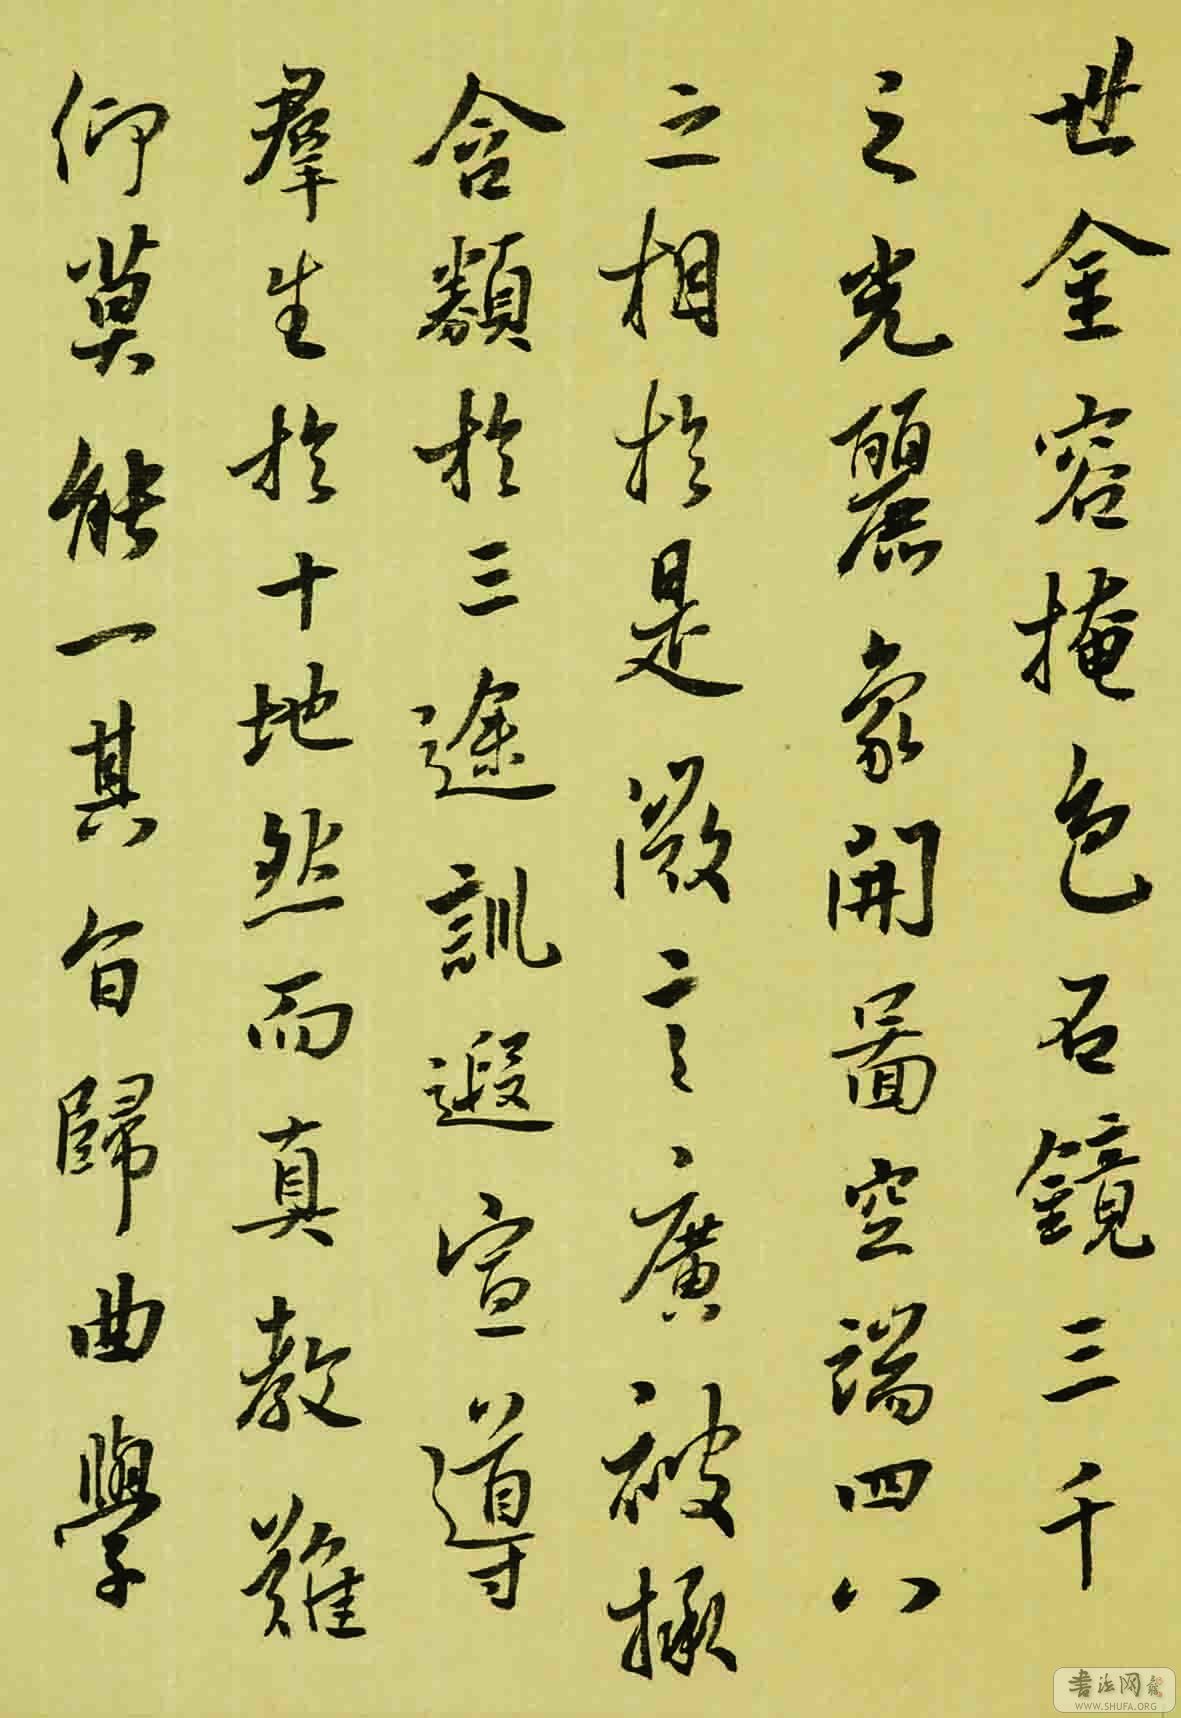 世金容掩色石鏡三千
之光麗象開啚空端四八
之相於是微言廣被拯
含類於三途訓遐宣導
羣生於十地然而真教難
仰莫能一其旨歸曲學
书法网
WWW.SHUFA.ORG